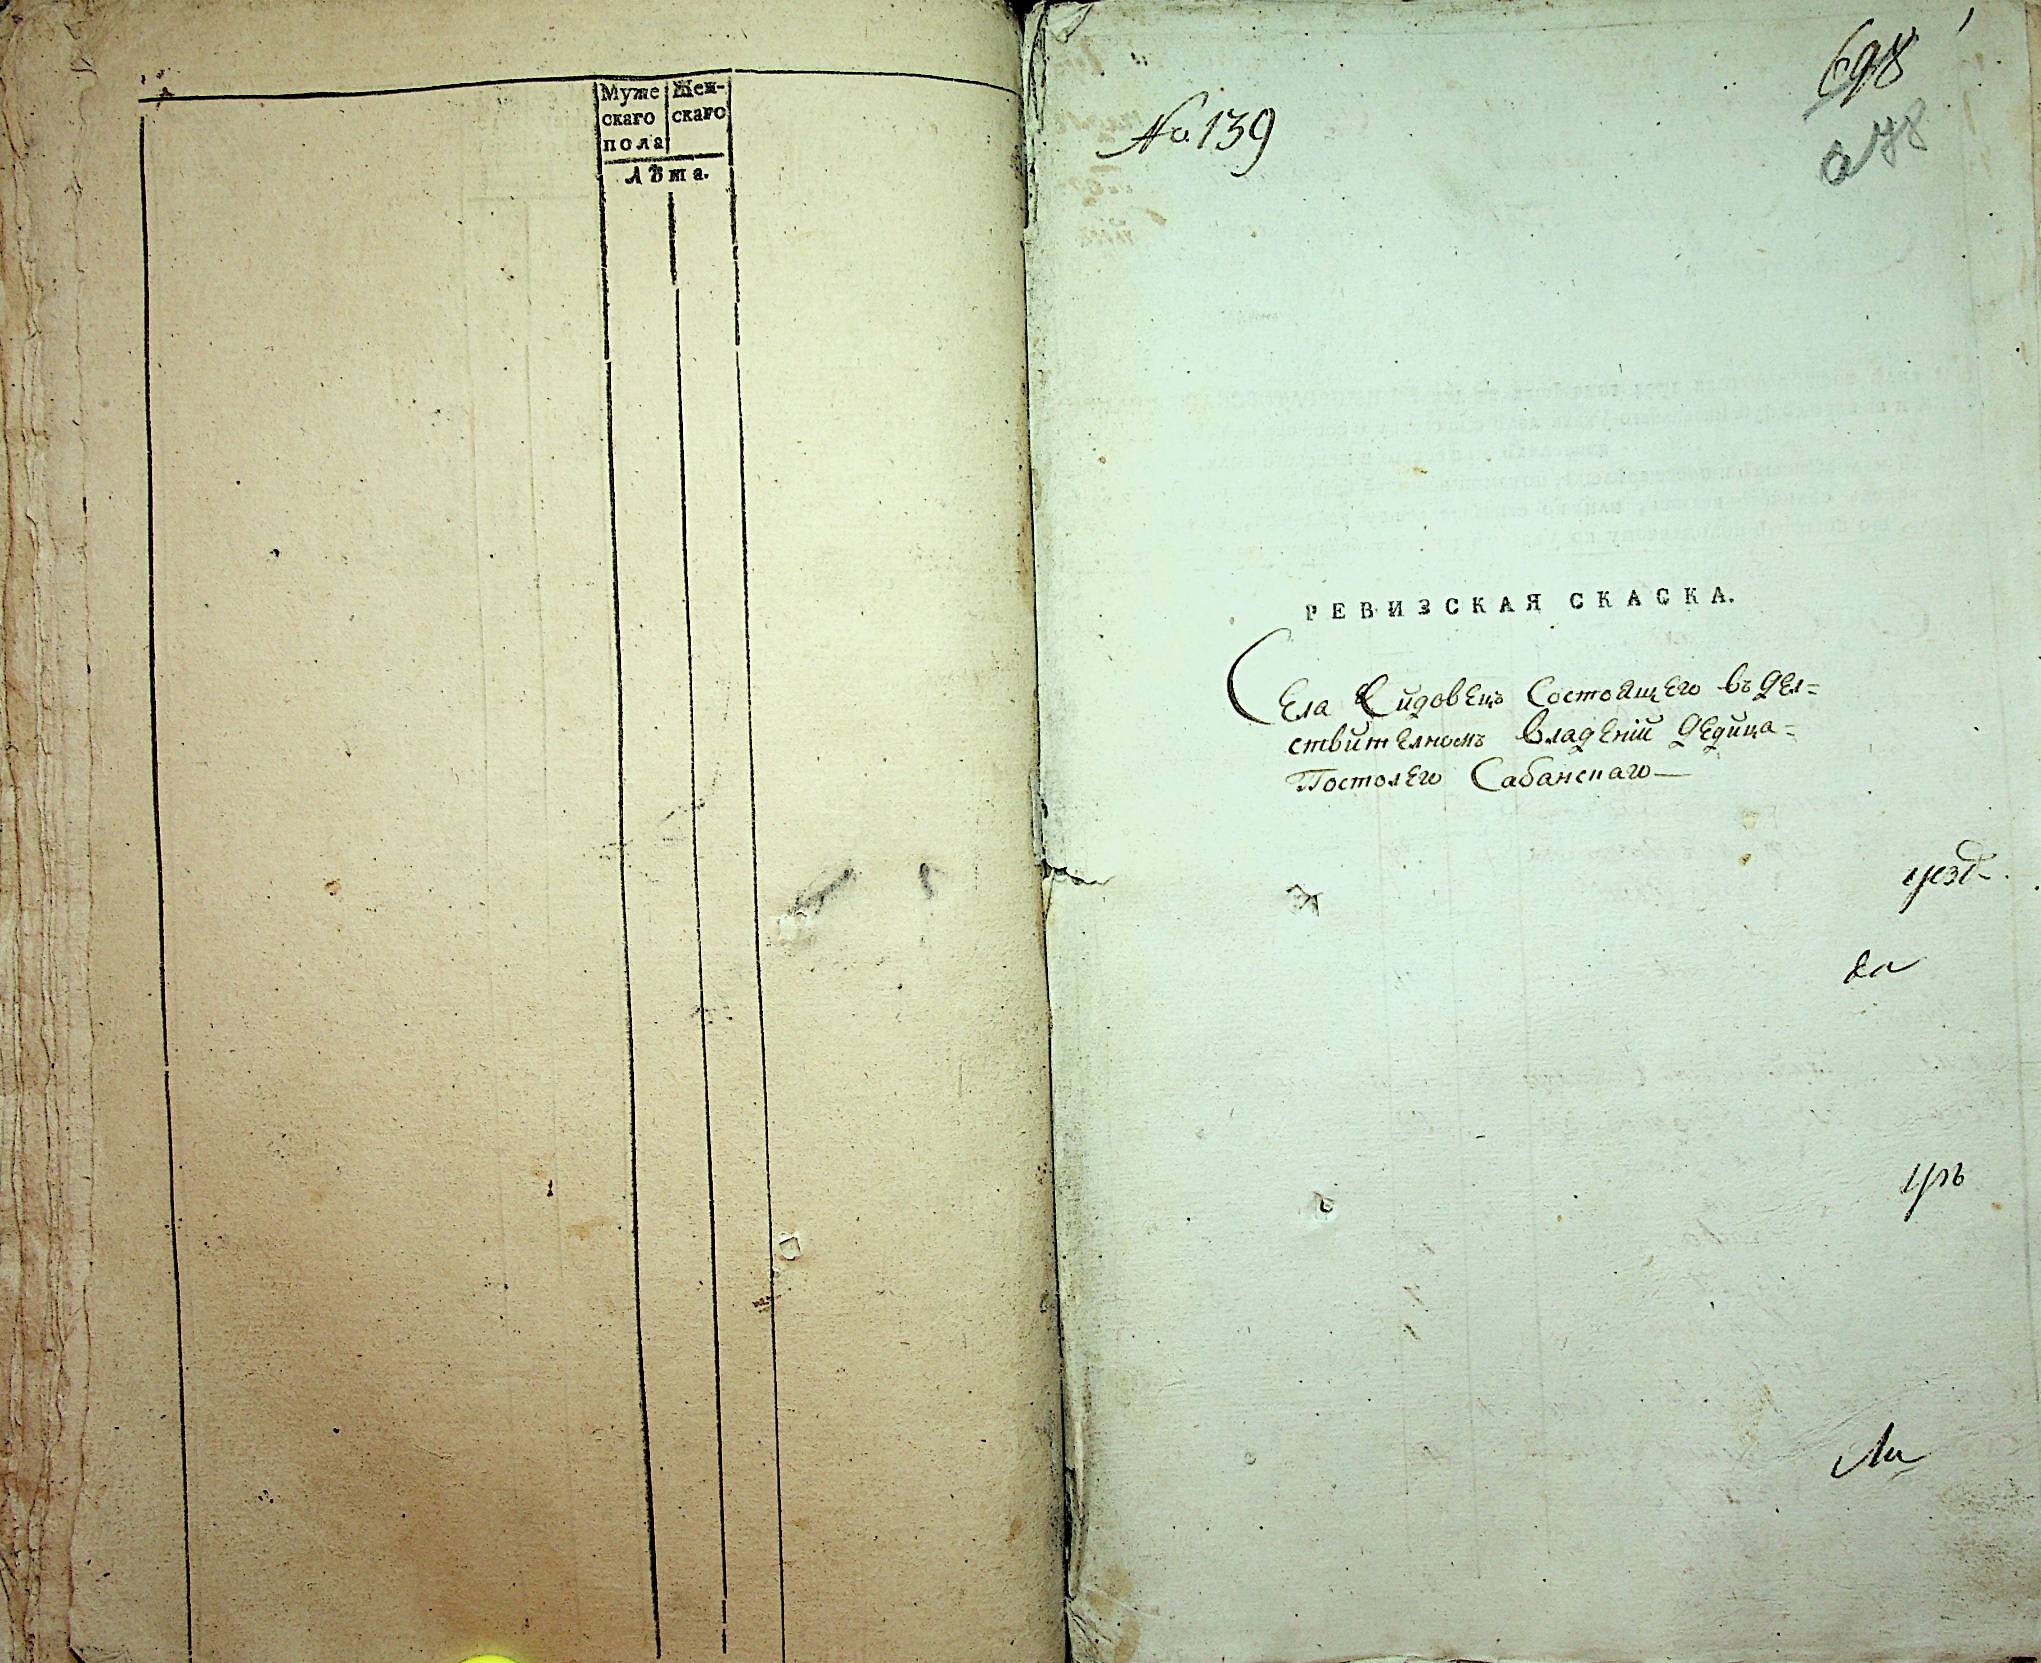 Муже
скаго
пола
Жен-
скаго
Лѣта.
698
No. 139
РЕВИЗСКАЯ СКАСКА.
Села Сидовецъ Состоящего въ дел=
ствителномъ владѣніи дедица=
Постолего Сабанскаго—
уезд
ка
Ли